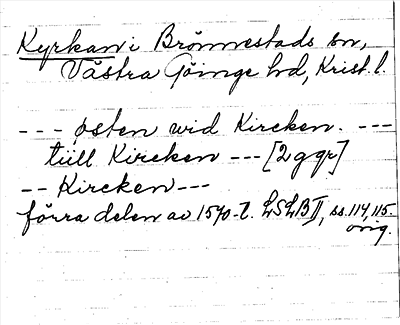 Kyrkan i Brönnestads sn,
Västra Göinge hd, Krist. l.
--- østen wid Kircken. ---
tiill Kircken --- [2 ggr]
-- Kircken ---
förra delen av 1570-t. LSLB II, ss. 114, 115.
orig.